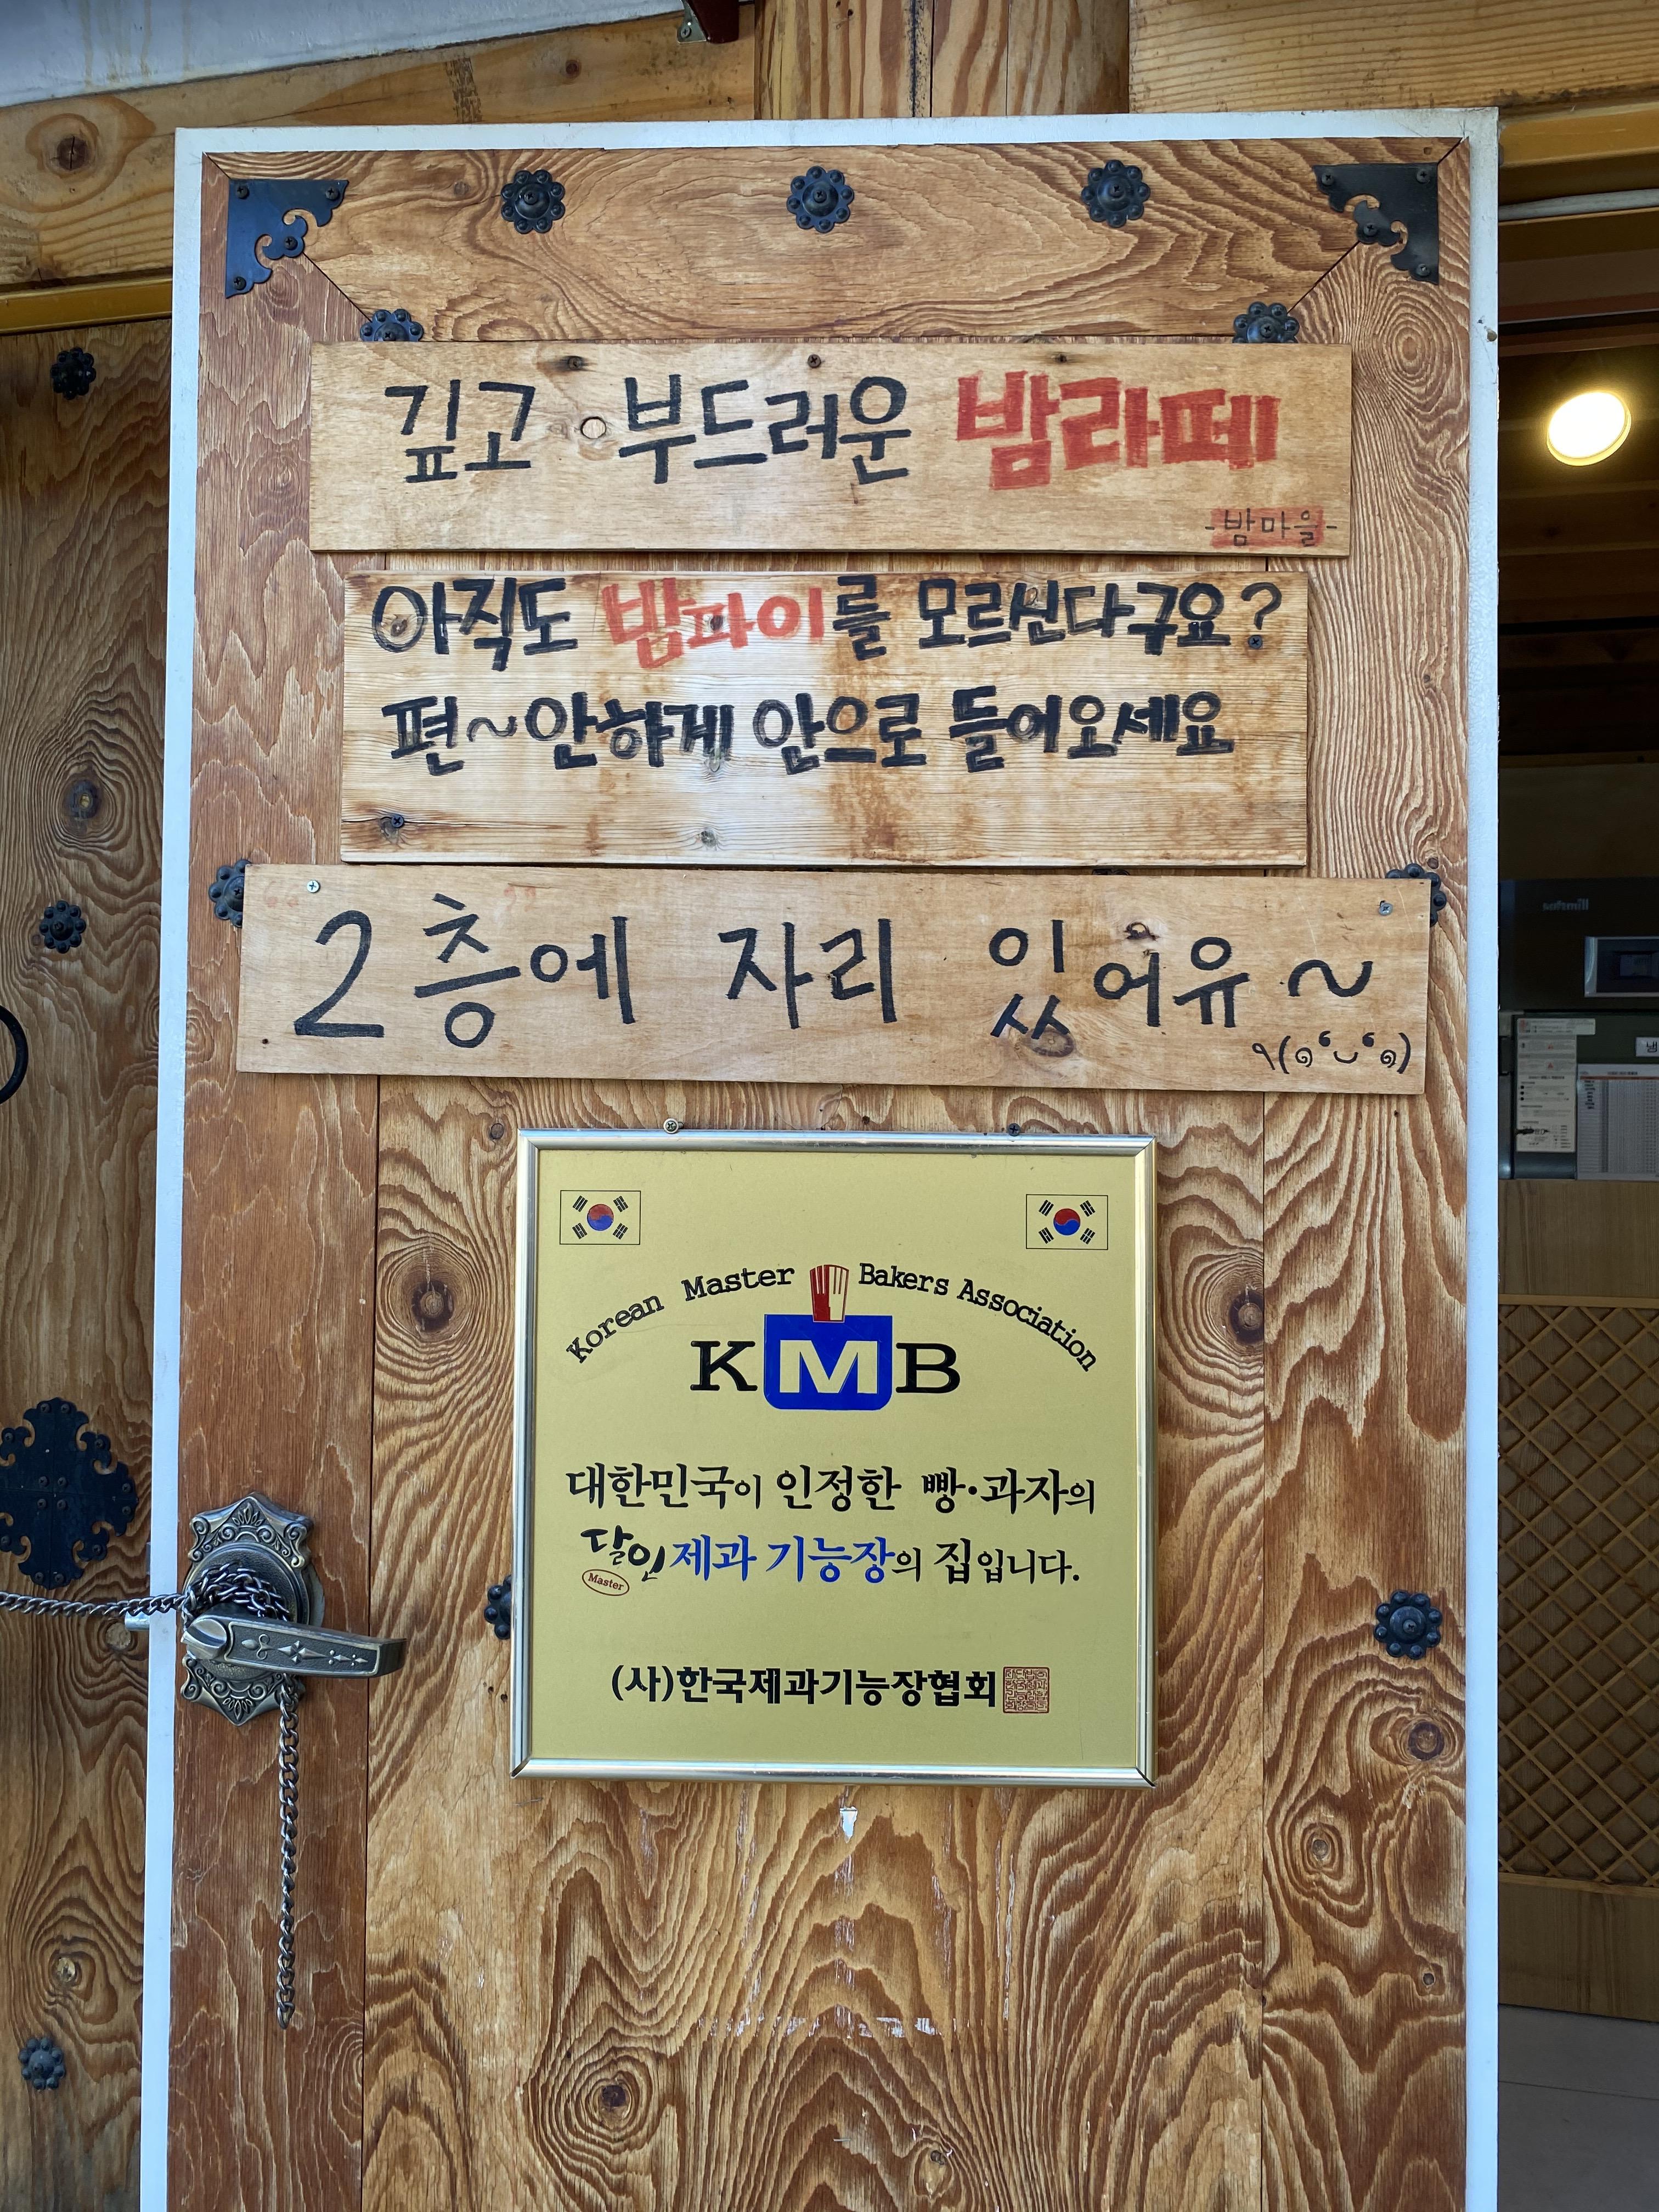 깊고 부드러운 밤라떼
-밤마을-
아직도 밤파이를 모르신다구요?
편~안하게 안으로 들어오세요
2층에 자리 있어유~
٩(๑❛◡❛๑)
Korean Master Bakers Association
KMB
대한민국이 인정한 빵·과자의
달인 제과 기능장의 집입니다.
Master
(사)한국제과기능장협회